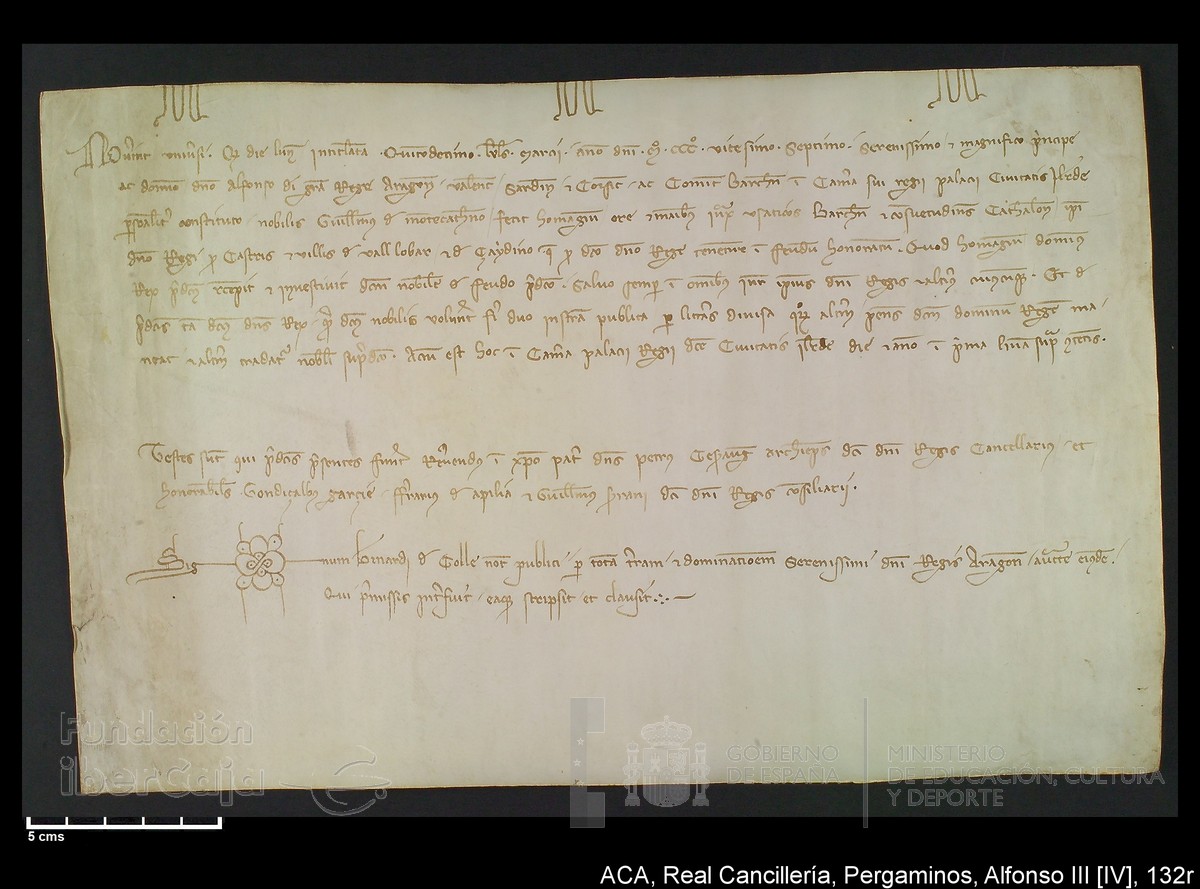 Noverint universi. Qd die lune intitulata. Quintodecimo. kls. marcii. anno dni. Mº. CCCº. vicesimo. Septimo. Serenissimo et magnifico principe
ac domino dno Alfonso di gra Rege Aragon. valenc. Sardin et Corsic. ac Comite Barchn in Camera sui regii palacii Civitatis Ilerde
personaliter constituto. nobilis Guillmus de montecatheno. fecit homagium ore et manibus iuxta usaticos Barchn et consuetudines Cathalon ipi
dno Regi pro Castris et villis de vall lobar et de Caydino que pro dco dno Rege tenentur in feudum honoratum. Quod homagium dominus
Rex predcm recepit et investivit dcm nobilem de feudo predco. Salvo semper in omnibus iure ipius dni Regis et alterius cuiuscumque. Et de
predcis tam dcus dns Rex. quam dcus nobilis voluerunt fieri duo instra publica per litteras divisa quorum alterum penes dcm dominum Regem ma-
neat et alterum tradatur nobili supradco. Actum est hoc in Camera palacii Regii dce Civitatis Ilerde die et anno in prima linea supra contentis.
Testes sunt qui predcis presentes fuerunt Reverendus in xpo pater dns petrus Cesaraug archieps dci dni Regis Cancellarius. et
honorabiles. Gondiçalbus garcie. fferrarius de apilia et Guillmus dci dni Regis consiliarii.
Sig num bernardi de Colle not publici per totam terram et dominationem Serenissimi dni Regis Aragon. auctte eiusdem.
Qui premissis interfuit. eaque scripsit et clausit.
5 cms
Fundación
iberCaja
GOBIERNO
DE ESPAÑA
MINISTERIO
DE EDUCACIÓN, CULTURA
Y DEPORTE
ACA, Real Cancillería, Pergaminos, Alfonso III [IV], 132r